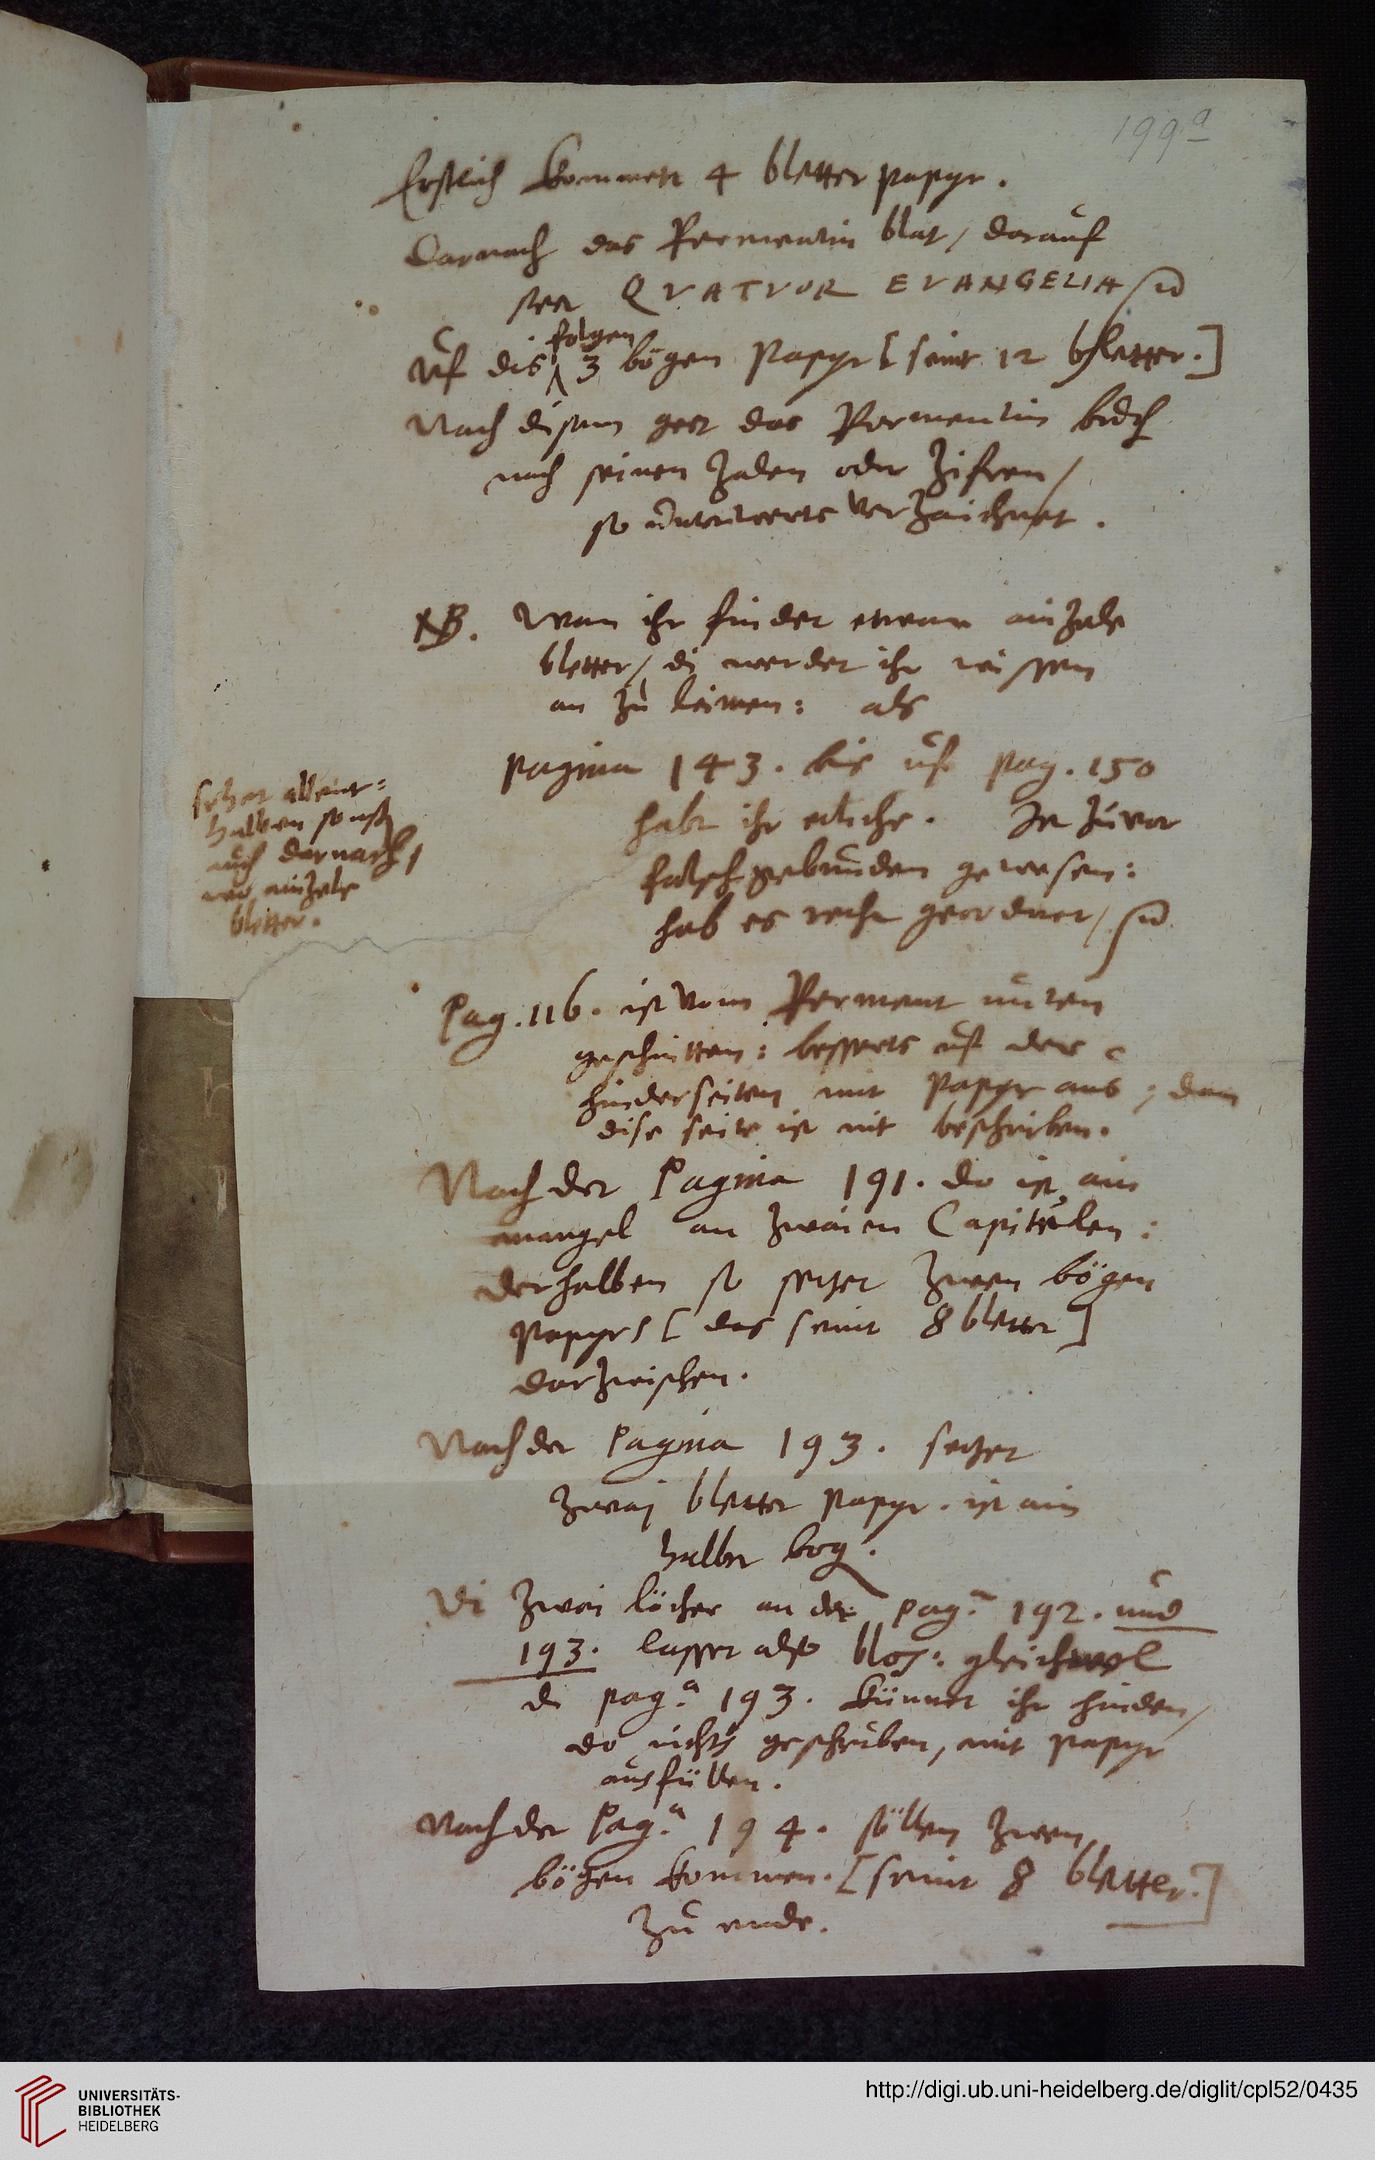 199a
Erstlich kommen 4 bletter papyr.
Darnach das Permentin blat / darauf
stet QVATVOR EVANGELIA
Uf dis folgen 3 bögen Papyr [ seint 12 bletter. ]
Nach disem geet das Permentin buch
nach seinen Zalen oder Zifren /
so unterwerts verzaichnet .
NB. Wan ihr findet etwan ainzele
bletter / di werdet ihr wissen
an zu leimen : als
pagina 143 . bis uf pag . 150
habt ihr etliche . Ist zuvor
falsch gebunden gewesen :
hab es recht geordnet /
sehet allent=
halben sonst
auch darnach /
wo ainzele
bletter .
Pag . 116 . ist vom Perment unten
geschnitten : besserts uf der
hinderseiten mit Papyr aus ; dan
dise seite ist nit beschriben .
Nach der Pagina 191 . do ist ain
mangel an zwaien Capitulen :
derhalben so setzet zwen bögen
Papyrs [ das seint 8 bletter ]
darzwischen .
Nach der Pagina 193 . setzet
zwaj bletter papyr . ist ain
halber bog .
Di zwai löcher an der pag.a 192 . und
193 . lasset also blos : gleichwol
di pag.a 193 . künnet ihr hinden /
do nichts geschriben , mit papyr
ausfüllen .
Nach der Pag.a 194 . söllen zwen
bögen kommen . [ seint 8 bletter . ]
zu ende .
UNIVERSITÄTS-
BIBLIOTHEK
HEIDELBERG
http://digi.ub.uni-heidelberg.de/diglit/cpl52/0435